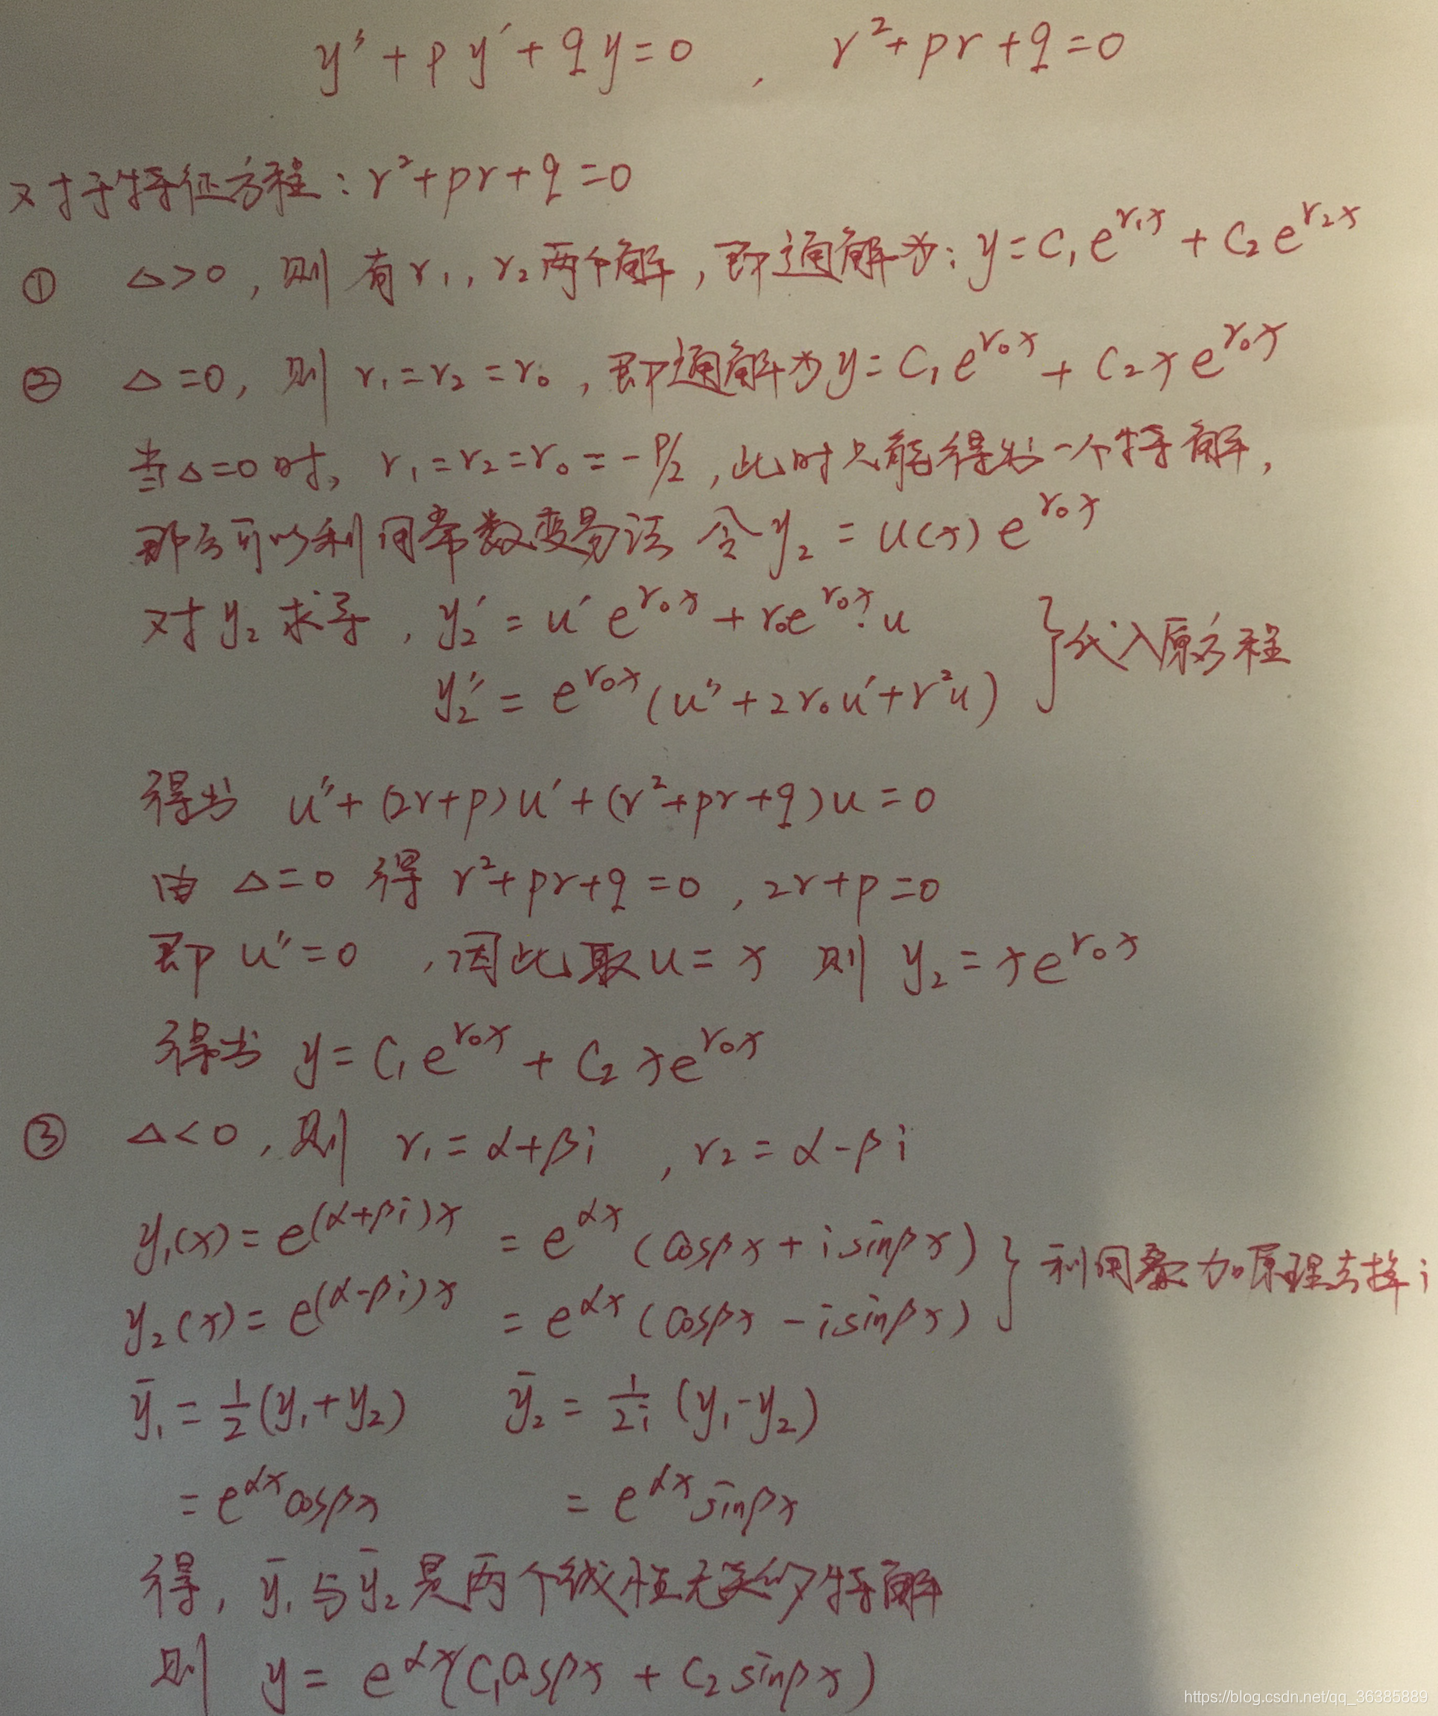 y″ + py′ + qy = 0 , r² + pr + q = 0
对于特征方程：r² + pr + q = 0
① Δ>0，则有r₁，r₂两个解，即通解为：y = C₁e^{r₁x} + C₂e^{r₂x}
② Δ=0，则 r₁=r₂=r₀，即通解为y = C₁e^{r₀x} + C₂xe^{r₀x}
当Δ=0时，r₁=r₂=r₀=-p/2，此时只能得出一个特解，
那么可以利用常数变易法 令y₂ = u(x)e^{r₀x}
对y₂求导，y₂′ = u′e^{r₀x} + r₀e^{r₀x}·u
y₂″ = e^{r₀x}(u″ + 2r₀u′ + r²u) } 代入原方程
得出 u″ + (2r+p)u′ + (r²+pr+q)u = 0
由 Δ=0 得 r²+pr+q=0，2r+p=0
即 u″=0 ，因此取u=x 则 y₂ = xe^{r₀x}
得出 y = C₁e^{r₀x} + C₂xe^{r₀x}
③ Δ<0，则 r₁=α+βi ，r₂=α-βi
y₁(x) = e^{(α+βi)x} = e^{αx}(cosβx + isinβx)
y₂(x) = e^{(α-βi)x} = e^{αx}(cosβx - isinβx) } 利用叠加原理去掉i
ȳ₁ = ½(y₁+y₂) ȳ₂ = 1/2i (y₁-y₂)
= e^{αx}cosβx = e^{αx}sinβx
得，ȳ₁与ȳ₂是两个线性无关的特解
则 y = e^{αx}(C₁cosβx + C₂sinβx)
https://blog.csdn.net/qq_36385889